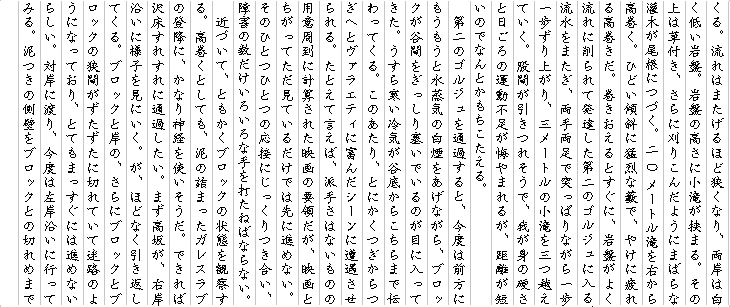 くる。流れはまたげるほど狭くなり、両岸は白
く低い岩盤。岩盤の高さに小滝が挟まる。その
上は草付き、さらに刈りこんだようにまばらな
灌木が尾根につづく。二〇メートル滝を右から
高巻く。ひどい傾斜に猛烈な藪で、やけに疲れ
る高巻きだ。巻きおえるとすぐに、岩盤がよく
流れに削られて発達した第二のゴルジュに入る。
流水をまたぎ、両手両足で突っぱりながら一歩
一歩ずり上がり、三メートルの小滝を三つ越え
ていく。股間が引きつれそうで、我が身の硬さ
と日ごろの運動不足が悔やまれるが、距離が短
いのでなんとかもちこたえる。
第二のゴルジュを通過すると、今度は前方に
もうもうと水蒸気の白煙をあげながら、ブロッ
クが谷間をぎっしり塞いでいるのが目に入って
きた。うすら寒い冷気が谷底からこちらまで伝
わってくる。このあたり、とにかくつぎからつ
ぎへとヴァラエティに富んだシーンに遭遇させ
られる。たとえて言えば、派手さはないものの
用意周到に計算された映画の要領だが、映画と
ちがってただ見ているだけでは先に進めない。
そのひとつひとつの応接にじっくりつき合い、
障害の数だけいろいろな手を打たねばならない。
近づいて、ともかくブロックの状態を観察す
る。高巻くとしても、泥の詰まったガレスラブ
の登降に、かなり神経を使いそうだ。できれば
沢床すれすれに通過したい。まず高坂が、右岸
沿いに様子を見にいく。が、ほどなく引き返し
てくる。ブロックと岸の、さらにブロックとブ
ロックの狭間がずたずたに切れていて迷路のよ
うになっており、とてもまっすぐには進めない
らしい。対岸に渡り、今度は左岸沿いに行って
みる。泥つきの側壁をブロックとの切れめまで